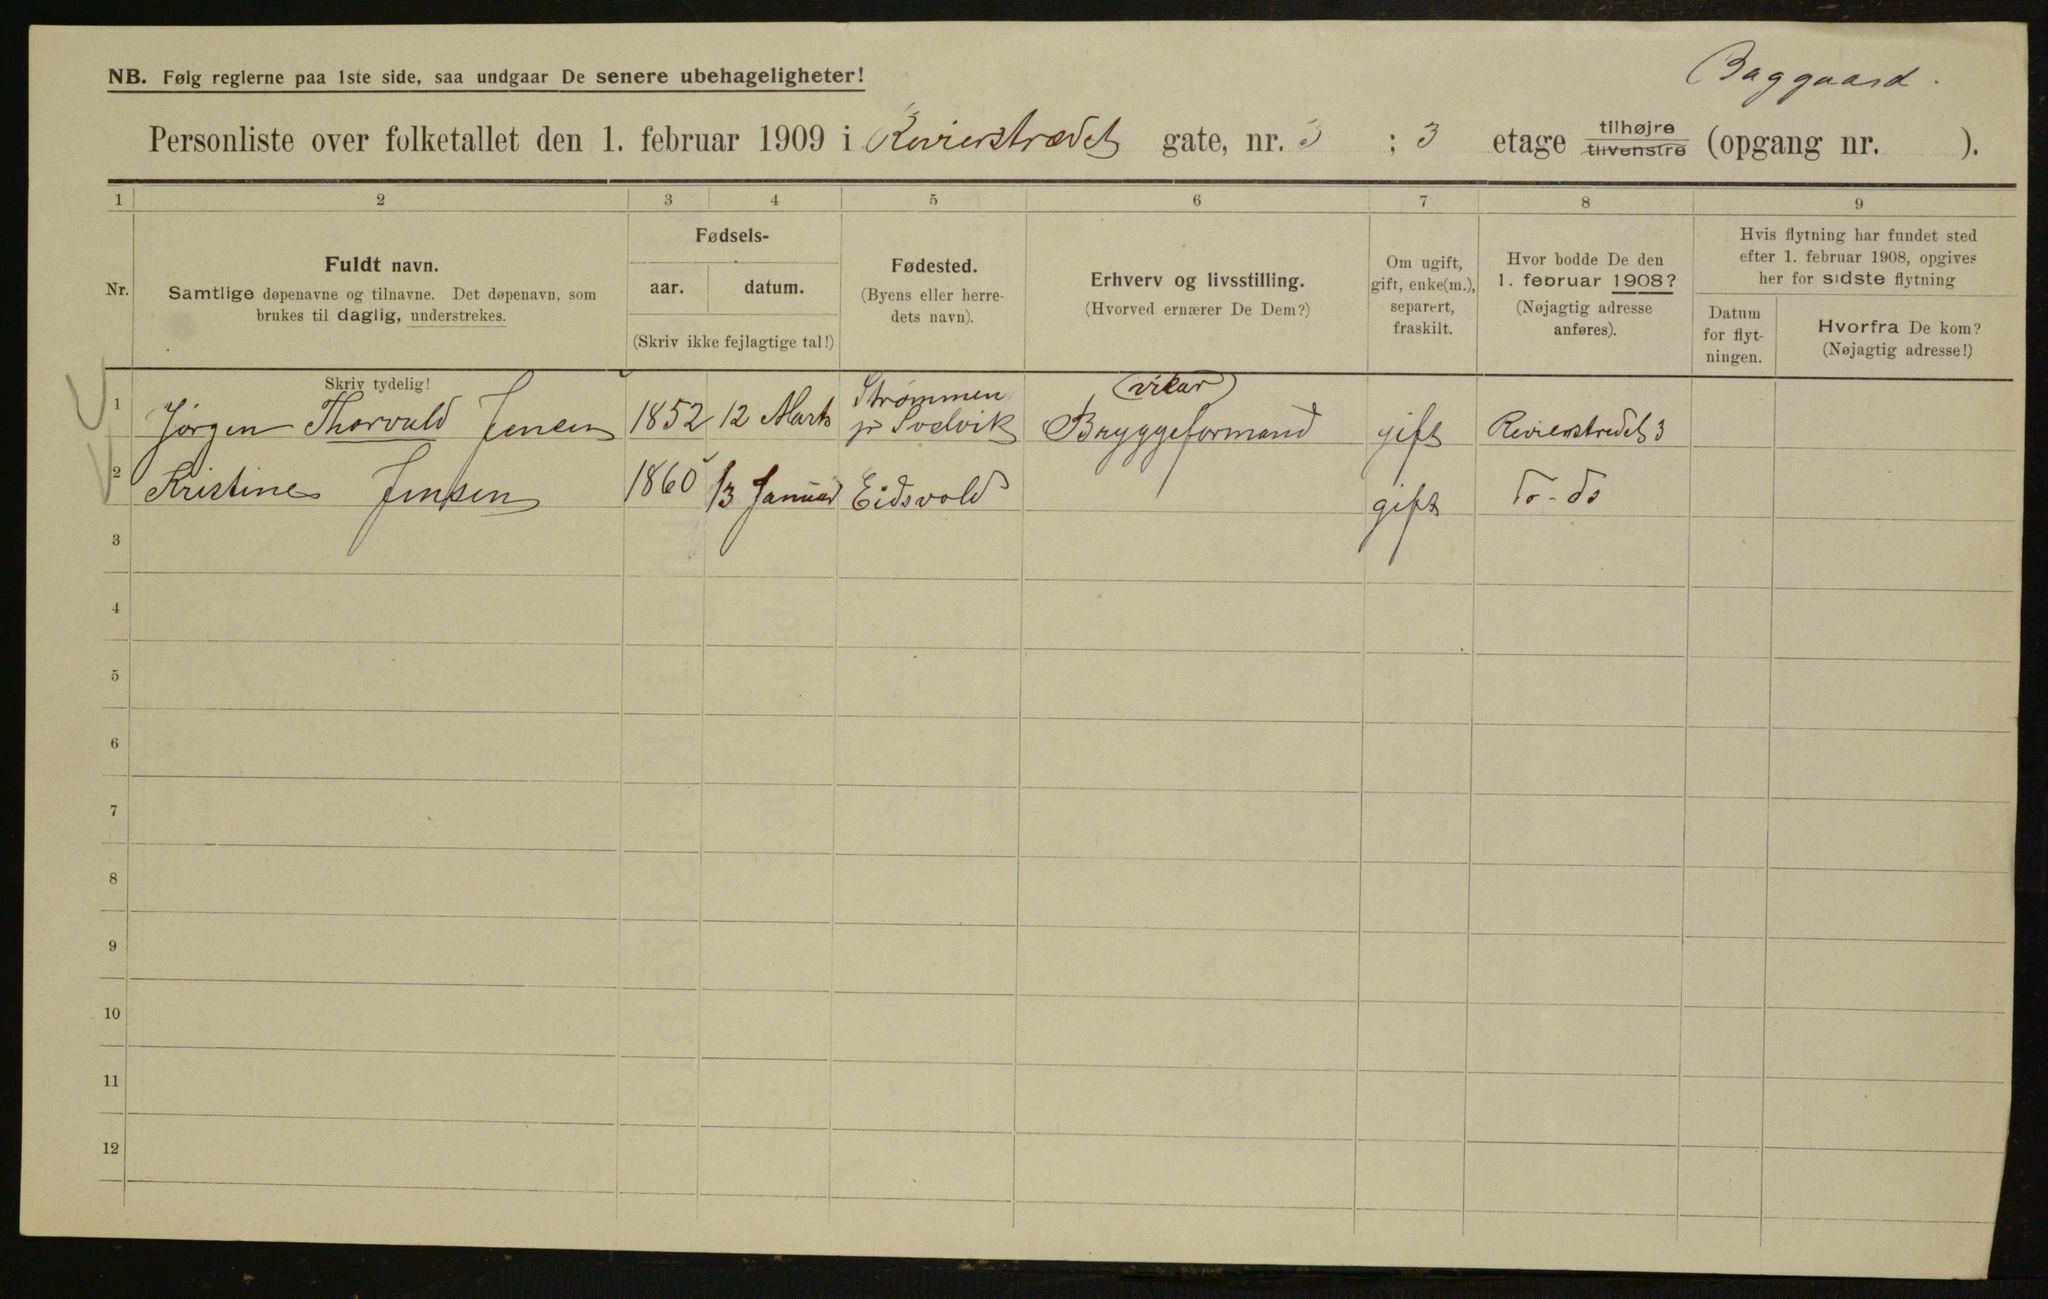 Baggaard.
NB. Følg reglerne paa 1ste side, saa undgaar De senere ubehageligheter!
Personliste over folketallet den 1. februar 1909 i Revierstrædet gate, nr. 3 ; 3 etage tilhøjre tilvenstre (opgang nr. ).
1 2 3 4 5 6 7 8 9
Nr.
Fuldt navn.
Samtlige døpenavne og tilnavne. Det døpenavn, som
brukes til daglig, understrekes.
Skriv tydelig!
Fødsels-
aar. datum.
(Skriv ikke fejlagtige tal!)
Fødested.
(Byens eller herre-
dets navn).
Erhverv og livsstilling.
(Hvorved ernærer De Dem?)
Om ugift,
gift, enke(m.),
separert,
fraskilt.
Hvor bodde De den
1. februar 1908?
(Nøjagtig adresse
anføres).
Hvis flytning har fundet sted
efter 1. februar 1908, opgives
her for sidste flytning
Datum
for flyt-
ningen.
Hvorfra De kom?
(Nøjagtig adresse!)
Strømmen vikar
1 Jørgen Thorvald Jensen 1852 12 Marts pr Svelvik Bryggeformand gift Revierstredet 3
2 Kristine Jensen 1860 13 Januar Eidsvold gift do - do
3
4
5
6
7
8
9
10
11
12